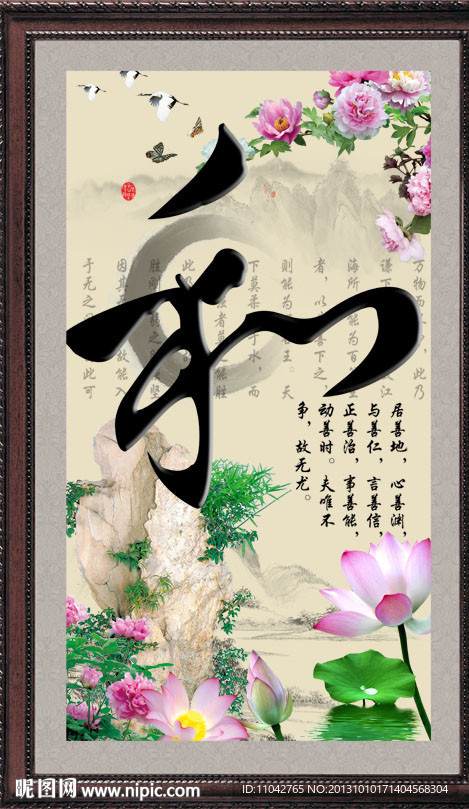 和
万物而 ，此乃
谦下 江
海所 能为百
者，以 善下之，
则能为 王。天
下莫柔 于水，而
者莫 能胜
此乃
胜刚 之 坚
因其 故能入
于无之 此可
居善地，心善渊，
与善仁，言善信，
正善治，事善能，
动善时。夫唯不
争，故无尤。
昵图网 www.nipic.com
ID:11042765 NO:20131010171404568304